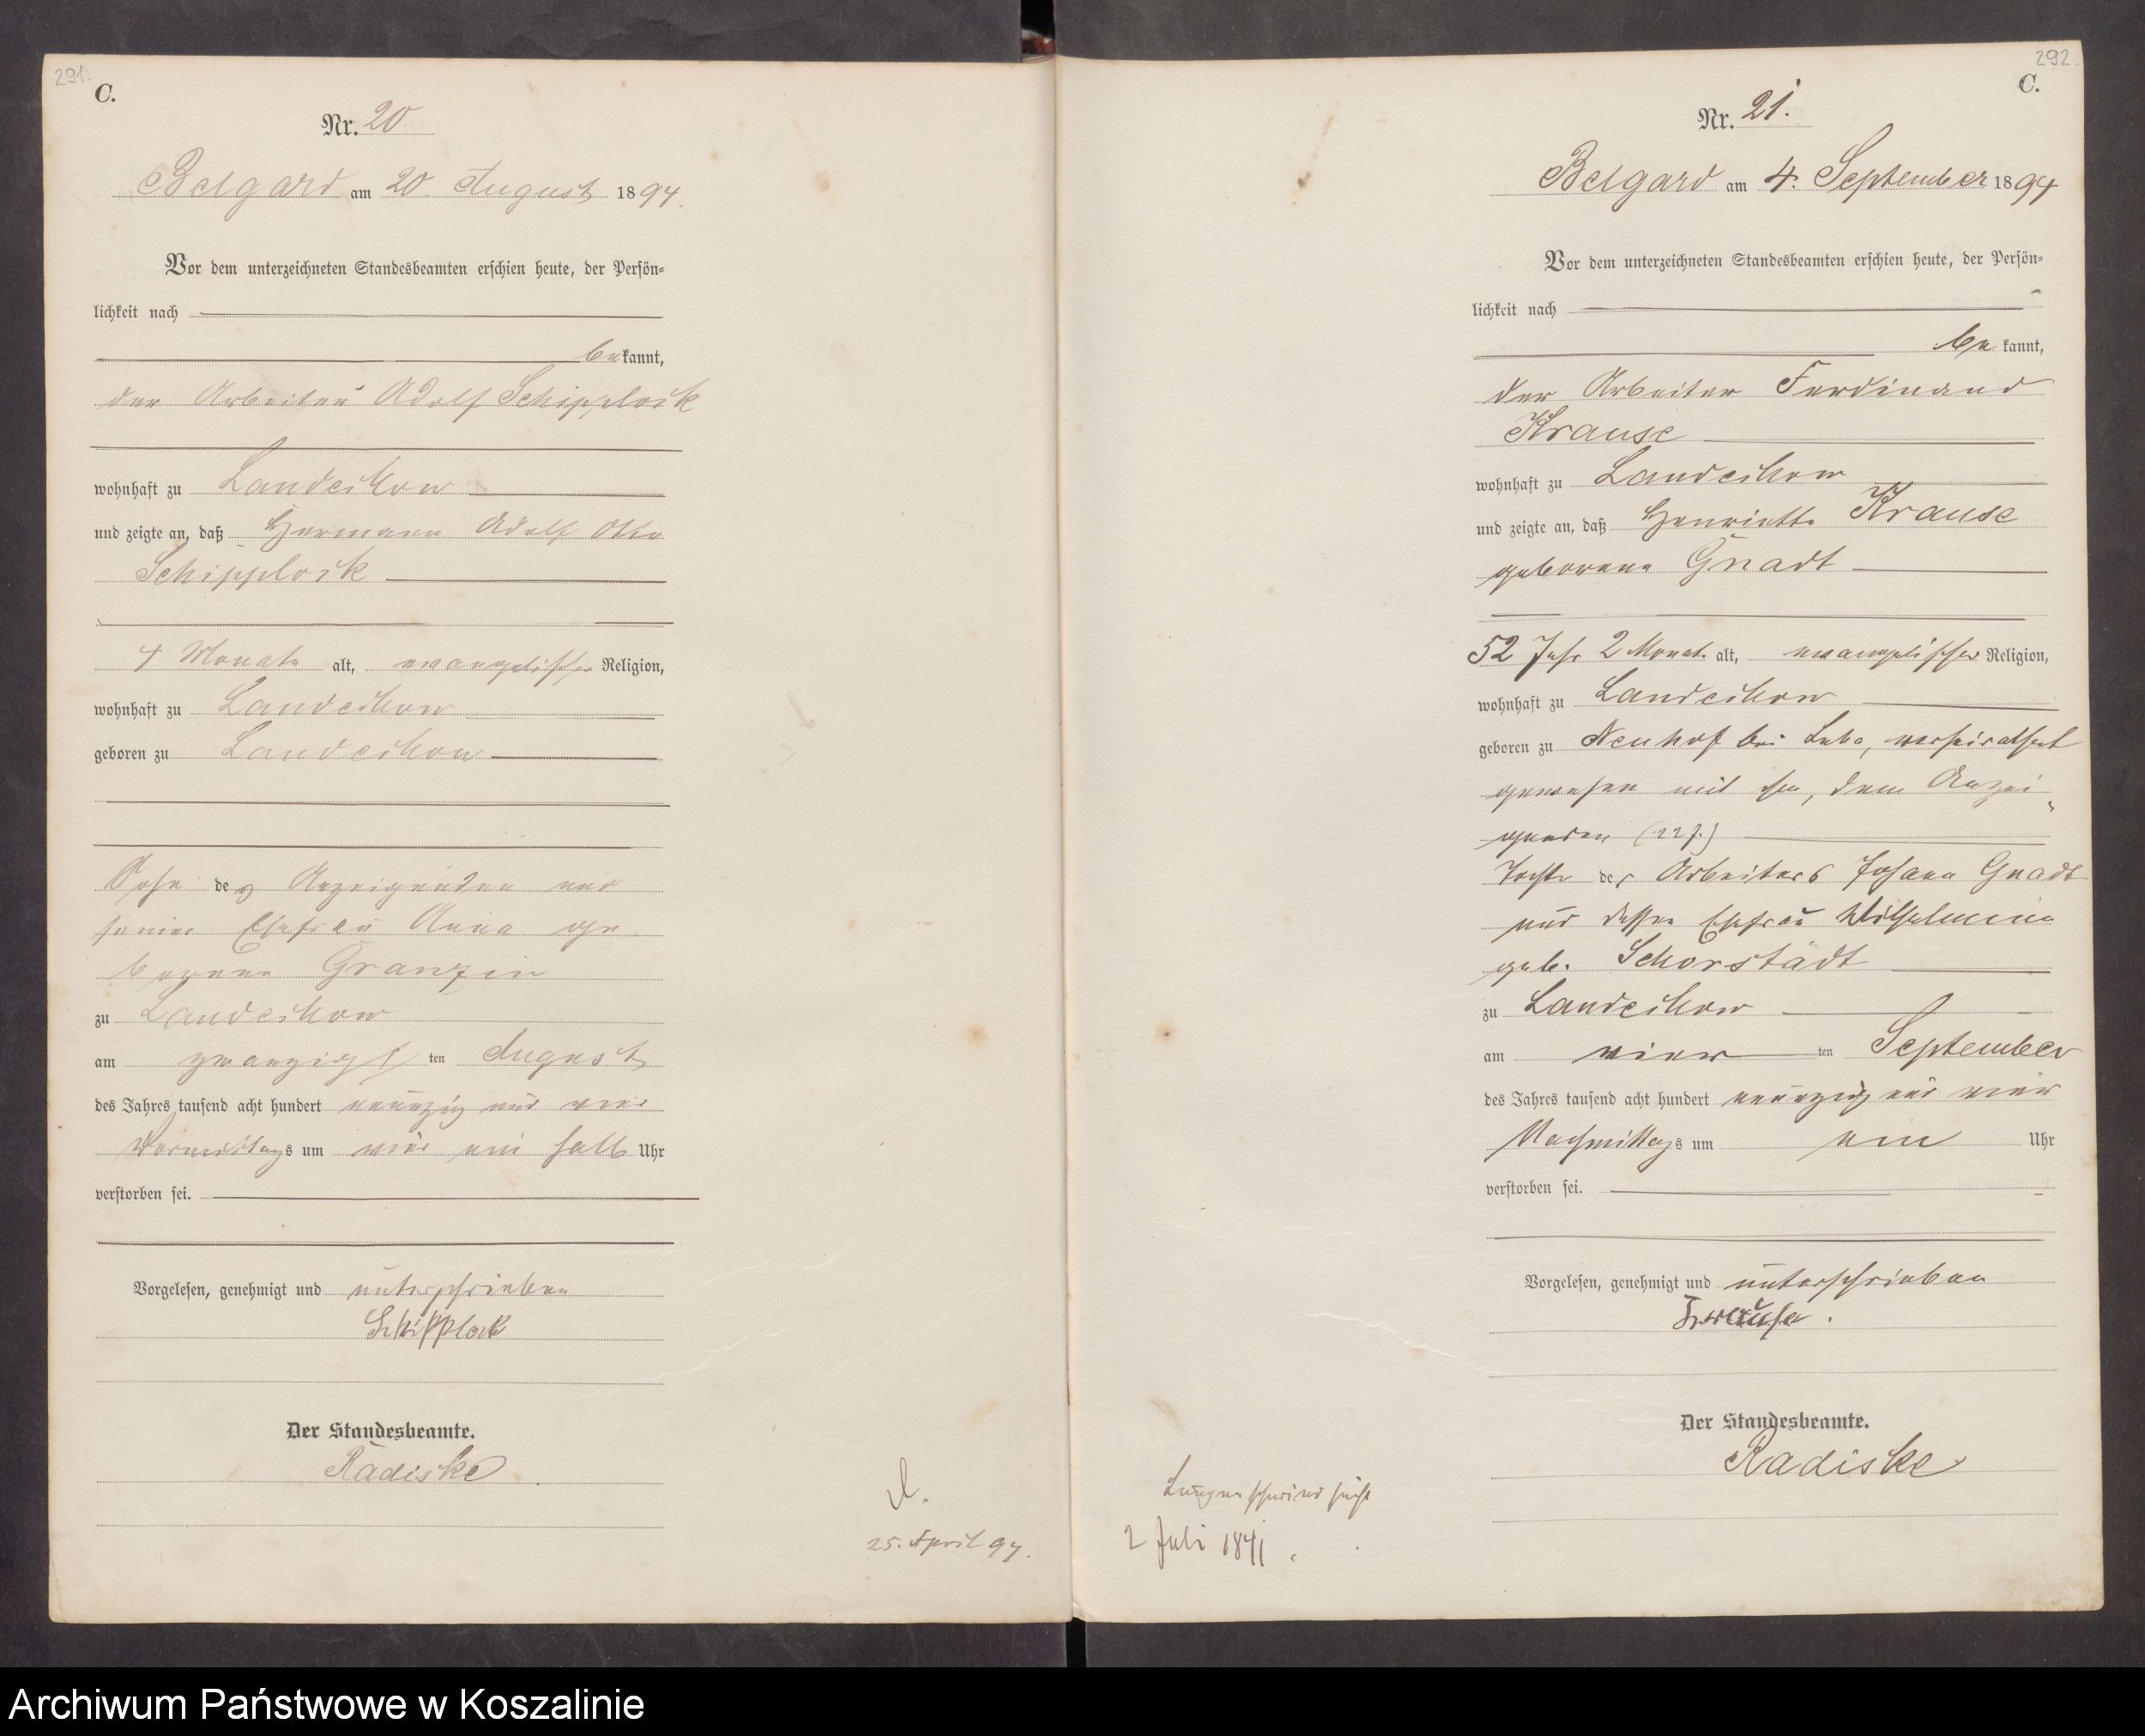 291.
C.
Nr. 20
Belgard am 20. August 1894.
Vor dem unterzeichneten Standesbeamten erschien heute, der Persön-
lichkeit nach
bekannt,
der Arbeiter Adolf Schipplock
wohnhaft zu Landechow
und zeigte an, daß Hermann Adolf Otto
Schipplock
4 Monate alt, evangelischer Religion,
wohnhaft zu Landechow
geboren zu Landechow
Sohn des Anzeigenden und
seiner Ehefrau Anna ge
borene Granzin
zu Landechow
am zwanzigsten August
des Jahres tausend acht hundert neunzig und vier
Vormittags um vier ein halb Uhr
verstorben sei.
Vorgelesen, genehmigt und unterschrieben
Schipplock
Der Standesbeamte.
Radiske
25. April 94.
292.
C.
Nr. 21.
Belgard am 4. September 1894
Vor dem unterzeichneten Standesbeamten erschien heute, der Persön-
lichkeit nach
bekannt,
der Arbeiter Ferdinand
Krause
wohnhaft zu Landechow
und zeigte an, daß Henriette Krause
geborene Gnadt
52 Jahr 2 Monat alt, evangelischer Religion,
wohnhaft zu Landechow
geboren zu Neuhof bei Leba, verheirathet
gewesen mit ihm, dem Anzei
genden (22 J.)
Tochter des Arbeiters Johann Gnadt
und dessen Ehefrau Wilhelmine
geb. Schorstädt
zu Landechow
am vierten September
des Jahres tausend acht hundert neunzig und vier
Nachmittags um ein Uhr
verstorben sei.
Vorgelesen, genehmigt und unterschrieben
Krause.
Der Standesbeamte.
Radiske
Lungenschwindsucht
2 Juli 1841
Archiwum Państwowe w Koszalinie